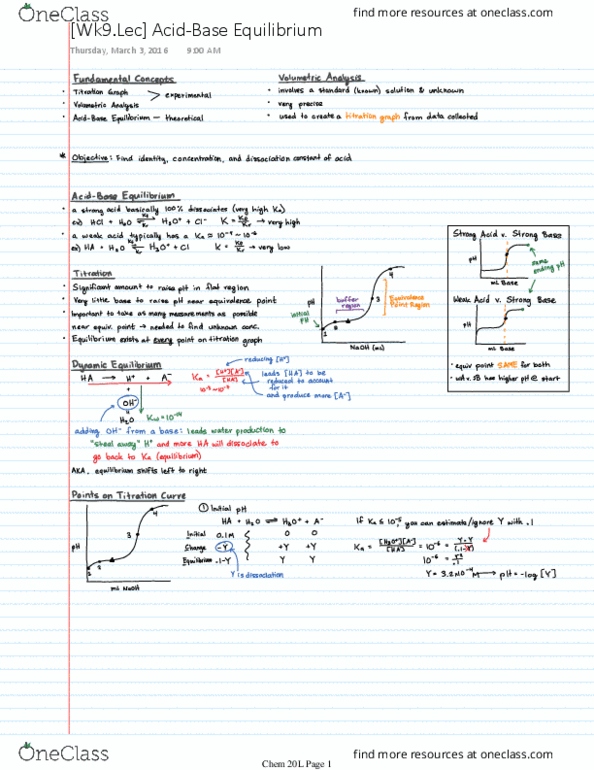 OneClass
find more resources at oneclass.com
[Wk9.Lec] Acid-Base Equilibrium
Thursday, March 3, 2016 9:00 AM
Fundamental Concepts
• Titration Graph
• Volumetric Analysis
> experimental
• Acid-Base Equilibrium — theoretical
Volumetric Analysis
• involves a standard (known) solution & unknown
• very precise
• used to create a titration graph from data collected
* Objective: Find identity, concentration, and dissociation constant of acid
Acid-Base Equilibrium
• a strong acid basically 100% dissociates (very high Ka)
ex) HCl + H₂O ⇌ H₃O⁺ + Cl⁻ K = Kf/Kr → very high
• a weak acid typically has a Ka ≈ 10⁻⁴ ~ 10⁻⁶
ex) HA + H₂O ⇌ H₃O⁺ + Cl K = Kf/Kr → very low
Titration
• Significant amount to raise pH in flat region
• Very little base to raise pH near equivalence point
• Important to take as many measurements as possible
near equiv. point → needed to find unknown conc.
• Equilibrium exists at every point on titration graph
pH
initial pH
buffer region
Equivalence Point Region
1
2
3
4
NaOH (aq)
Strong Acid v. Strong Base
pH
mL Base
same ending pH
Weak Acid v. Strong Base
pH
mL Base
• equiv point SAME for both
Dynamic Equilibrium
HA → H⁺ + A⁻
+
OH⁻
H₂O
Kw = 10⁻¹⁴
Ka = [H⁺][A⁻]/[HA]
reducing [H⁺]
leads [HA] to be
reduced to account
for it
and produce more [A⁻]
adding OH⁻ from a base: leads water production to
"steel away" H⁺ and more HA will dissociate to
go back to Ka (equilibrium)
AKA, equilibrium shifts left to right
Points on Titration Curve
pH
1
2
3
4
mL NaOH
① Initial pH
HA + H₂O ⇌ H₃O⁺ + A⁻
Initial 0.1M 0 0
Change -Y +Y +Y
Equilibrium .1-Y Y Y
Y is dissociation
If Ka ≤ 10⁻⁵, you can estimate/ignore Y with .1
Ka = [H₃O⁺][A⁻]/[HA] = 10⁻⁶ = Y·Y/(.1-Y)
10⁻⁶ = Y²/.1
Y = 3.2x10⁻⁴M → pH = -log [Y]
OneClass
Chem 20L Page 1
find more resources at oneclass.com